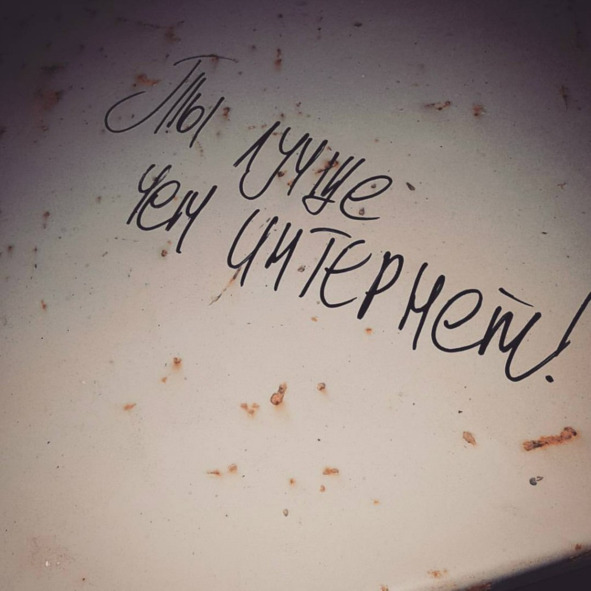 Ты лучше
чем интернет!